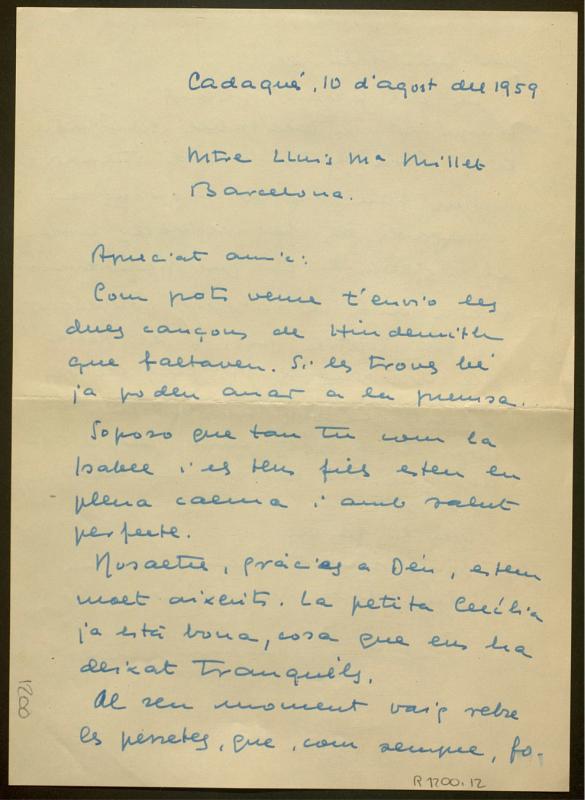 Cadaqués, 10 d'agost del 1959
Mtre Lluís Mª Millet
Barcelona.
Apreciat amic:
Com pots veure t'envio les
dues cançons de Hindemith
que faltaven. Si les troves bé
ja poden anar a la premsa.
Soposo que tan tu com la
Isabel i els teus fills esteu en
plena calma i amb salut
perfecte.
Nosaltres, gràcies a Déu, estem
molt aixerits. La petita Cecília
ja està bona, cosa que ens ha
deixat tranquéls.
Al seu moment vaig rebre
les pessetes, que, com sempre, fo-
1200
R 1200.12